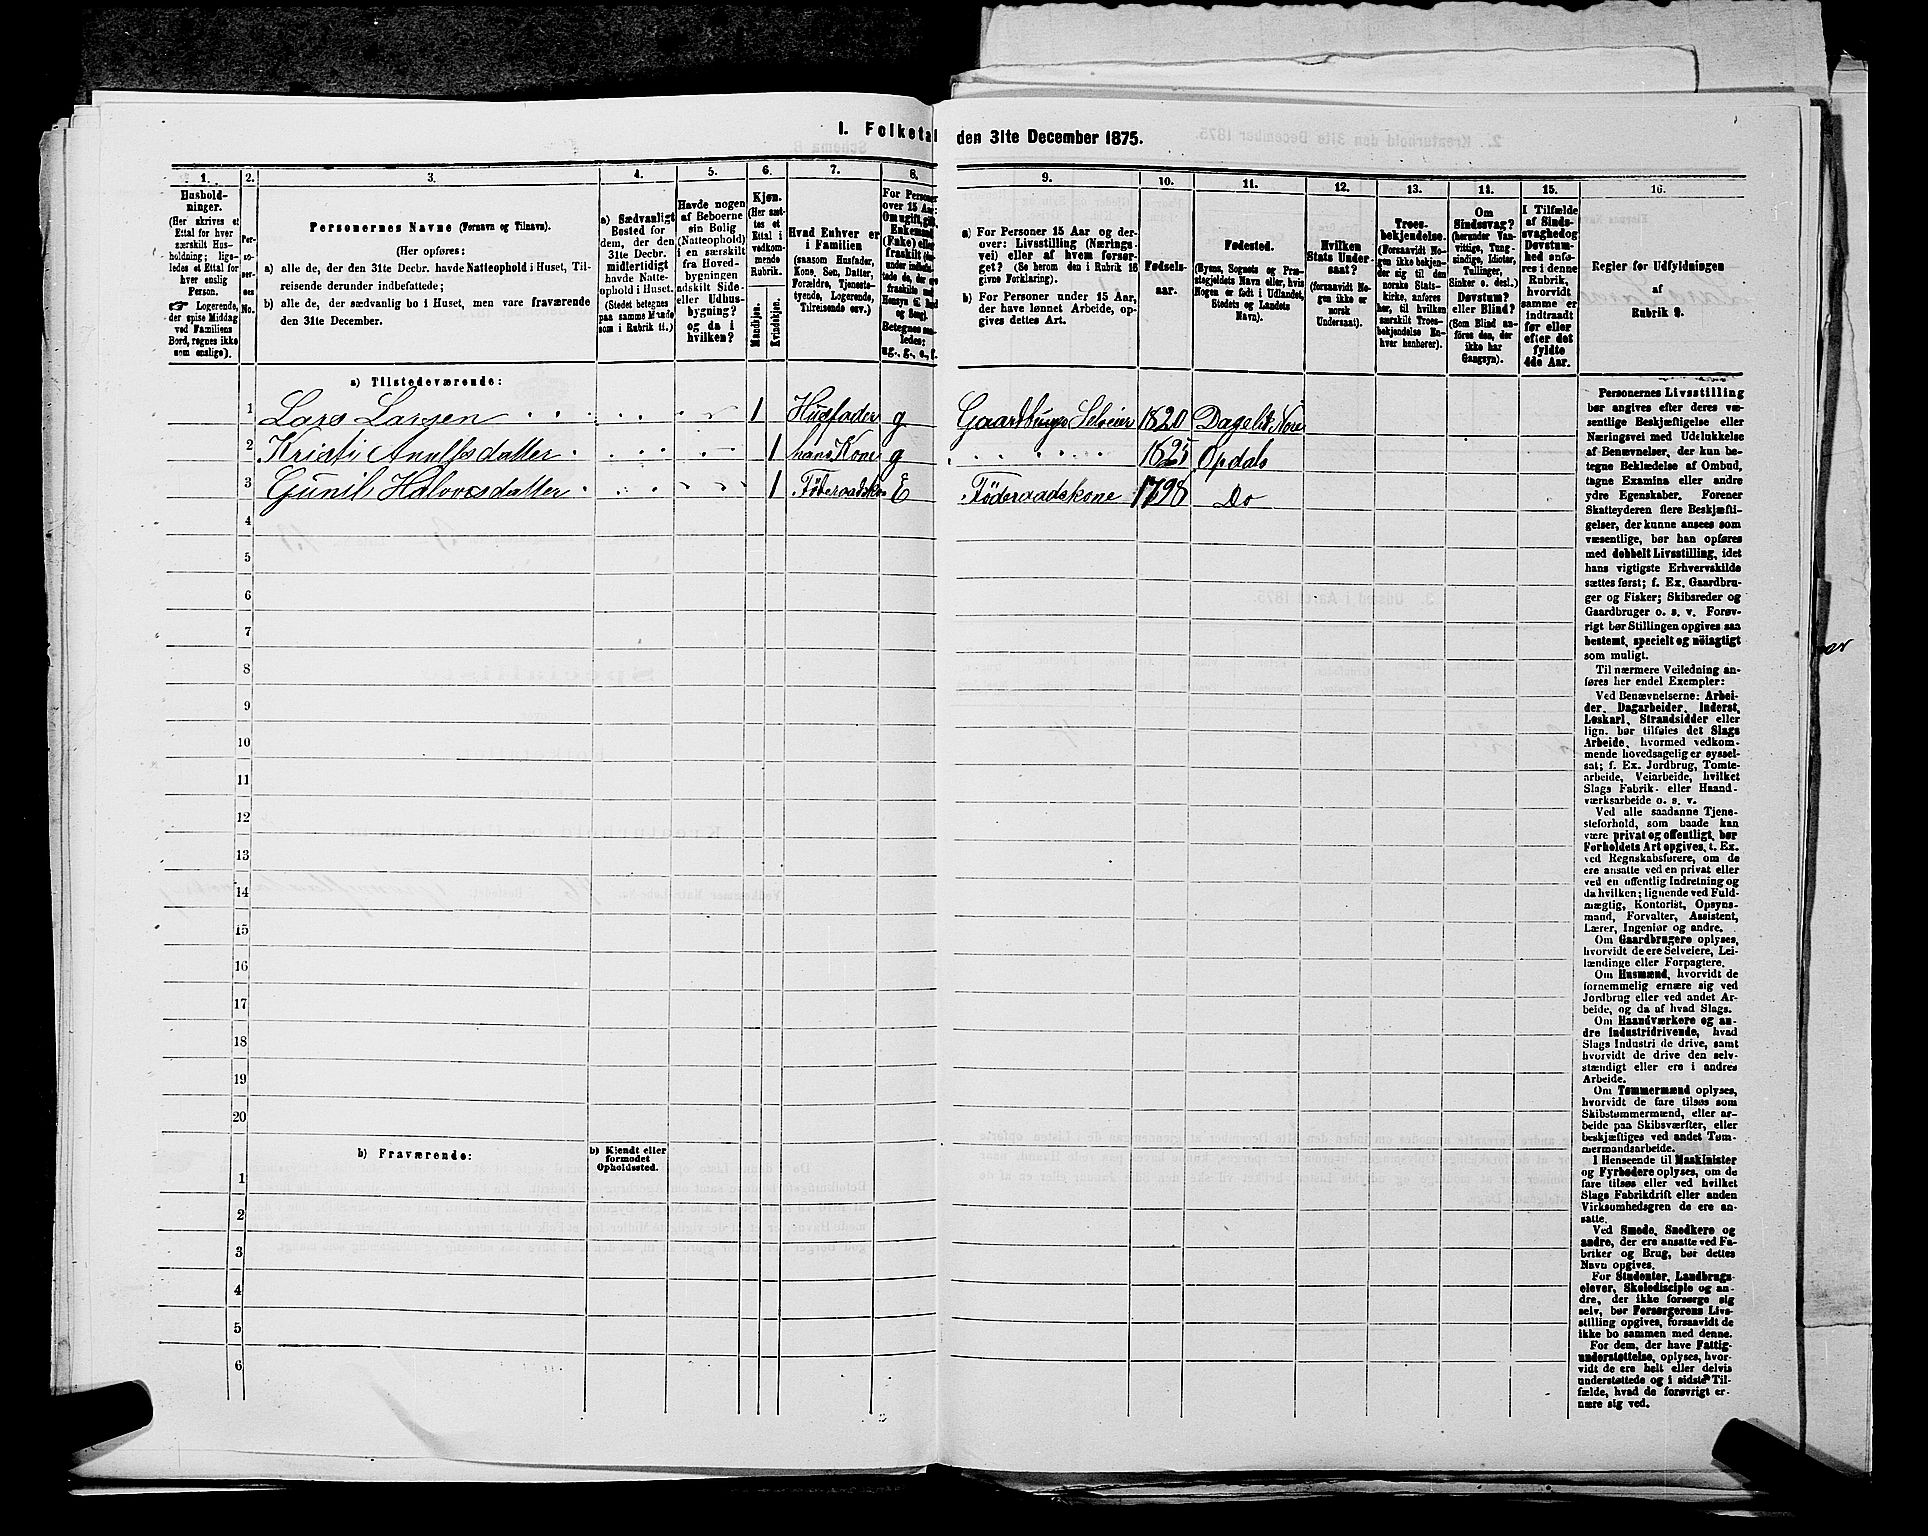 1. Folketal den 31te December 1875.
1.
2.
3.
4.
5.
6.
7.
8.
9.
10.
11.
12.
13.
14.
15.
16.
Hushold-
ninger.
(Her skrives et
Ettal for hver
særskilt Hus-
holdning; liga-
ledes et Ettal for
hver enslig
Person.
☞ Logerende,
der spise Middag
ved Familiens
Bord, regnes ikke
som enslige).
Per-
so-
ner-
nes
No.
Personernes Navne (Fornavn og Tilnavn).
(Her opføres:
a) alle de, der den 31te Decbr. havde Natteophold i Huset, Til-
reisende derunder indbefattede;
b) alle de, der sædvanlig bo i Huset, men vare fraværende
den 31te December.
a) Sædvanligt
Bosted for
dem, der den
31te Decbr.
midlertidigt
havde Natte-
ophold i Huset.
(Stedet betegnes
paa samme Maade
som i Rubrik 11.)
Havde nogen
af Beboerne
sin Bolig
(Natteophold)
i en særskilt
fra Hoved-
bygningen
adskilt Side-
eller Udhus-
bygning?
og da i
hvilken?
Kjøn.
(Her sæt-
tes et
Ettal i
vedkom-
mende
Rubrik.
Mandkjøn.
Kvindekjøn.
Hvad Enhver er
i Familien
(saasom Husfader,
Kone, Søn, Datter,
Forældre, Tjeneste-
tyende, Logerende,
Tilreisende osv.)
For Personer
over 15 Aar:
Om ugift, gift,
Enkemand
(Enke) eller
fraskilt
Betegnes saa-
ledes:
ug., g., e., f.
a) For Personer 15 Aar og der-
over: Livsstilling (Nærings-
vei) eller af hvem forsør-
get? (Se herom den i Rubrik 16
givne Forklaring).
b) For Personer under 15 Aar,
der have lønnet Arbeide, op-
gives dettes Art.
Fødsels-
aar.
Fødested.
(Byens, Sognets og Præ-
stegjeldets Navn eller, hvis
Nogen er født i Udlandet,
Stedets og Landets
Navn).
Hvilken
Stats Under-
saat?
(forsaavidt No-
gen ikke er
norsk
Undersaat).
Troes-
bekjendelse.
(Forsaavidt No-
gen ikke bekjen-
der sig til den
norske Stats-
kirke, anføres
her, til hvilken
særskilt Troes-
bekjendelse En-
hver henhører).
Om
Sindssvag?
(herunder Van-
vittige, Tung-
sindige, Idioter,
Tullinger,
Sinker o. desl.)
Døvstum?
eller Blind?
(Som Blind an-
føres den, der
ikke har
Gangsyn).
I Tilfælde
af Sinds-
svaghed og
Døvstum-
hed anfø-
res i denne
Rubrik,
hvorvidt
samme er
indtraadt
før eller
efter det
fyldte
4de Aar.
Regler for Udfyldningen
af
Rubrik 9.
a) Tilstedeværende:
1 Lars Larsen 1 Husfader g Gaardbruger Selveier 1820
2 Kristi 1 hans Kone g 1825 Opdals
3 Gunil Halvorsdatter 1 Føderaadsko E Føderaadskone 1798 Do
4
5
6
7
8
9
10
11
12
13
14
15
16
17
18
19
20
b) Fraværende:
b) Kjendt eller
formodet
Opholdssted.
1
2
3
4
5
6
Personernes Livsstilling
bør angives efter deres væ-
sentlige Beskjæftigelse eller
Næringsvei med Udelukkelse
af Benævnelser, der kun be-
tegne Beklædelse af Ombud,
tagne Examina eller andre
ydre Egenskaber. Forener
Skatteyderen flere Beskjæfti-
gelser, der kunne ansees som
væsentlige, bør han opføres
med dobbelt Livsstilling, idet
hans vigtigste Erhvervskilde
sættes først; f. Ex. Gaardbru-
ger og Fisker; Skibsreder og
Gaardbruger o. s. v. Forøv-
rigt bør Stillingen opgives saa
bestemt, specielt og nöiagtigt
som muligt.
Til nærmere Veiledning an-
føres her endel Exempler:
Ved Benævnelserne: Arbei-
der, Dagarbeider, Inderst,
Løskarl, Strandsidder eller
lign. bør tilføies det Slags
Arbeide, hvormed vedkom-
mende hovedsagelig er syssel-
sat; f. Ex. Jordbrug, Tomte-
arbeide, Veiarbeide, hvilket
Slags Fabrik- eller Haand-
værksarbeide o. s. v.
Ved alle saadanne Tjene-
steforhold, som baade kan
være privat og offentligt, bør
Forholdets Art opgives, t. Ex.
ved Regnskabsførere, om de
ere ansatte ved en privat eller
ved en offentlig Indretning og
da hvilken; lignende ved Fuld-
mægtig, Kontorist, Opsyns-
mand, Forvalter, Assistent,
Lærer, Ingeniør og andre.
Om Gaardbrugere oplyses,
hvorvidt de ere Selveiere, Lei-
lændinge eller Forpagtere.
Om Husmænd, hvorvidt de
fornemmelig ernære sig ved
Jordbrug eller ved andet Ar-
beide, og da af hvad Slags.
Om Haandværkere og an-
dre Industridrivende, hvad
Slags Industri de drive, samt
hvorvidt de drive den selv-
stændigt eller ere i andres
Arbeide.
Om Tømmermænd oplyses,
hvorvidt de fare tilsøs som
Skibstømmermænd, eller ar-
beide paa Skibsværfter, eller
beskjæftiges ved andet Tøm-
mermandsarbeide.
I Henseende til Maskinister
og Fyrbødere oplyses, om de
fare tilsøs eller ved hvilket
Slags Fabrikdrift eller anden
Virksomhedsgren de ere an-
satte.
Ved Smede, Snedkere og
andre, der ere ansatte ved Fa-
briker og Brug, bør dettes
Navn opgives.
For Studenter, Landbrugs-
elever, Skoledisciple og an-
dre, der ikke forsørge sig
selv, bør Forsørgerens Livs-
stilling opgives, forsaavidt de
ikke bo sammen med denne.
For dem, der have Fattig-
understøttelse, oplyses, hvor-
vidt de ere helt eller delvis
understøttede og i sidste Til-
fælde, hvad de forøvrigt er-
nære sig ved.